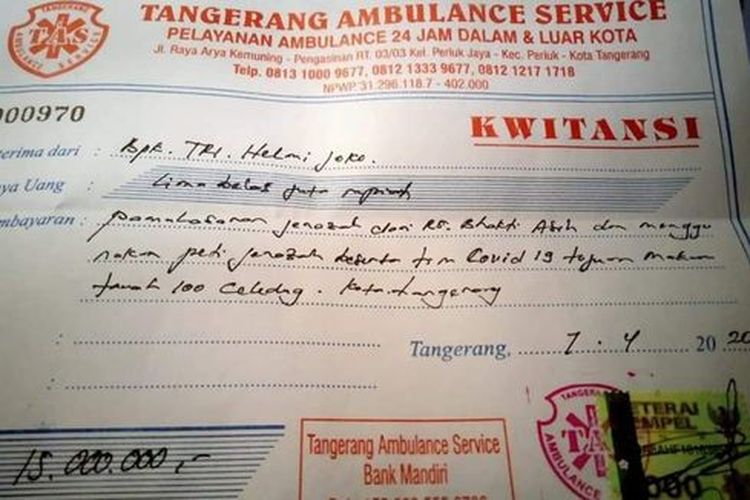 TANGERANG AMBULANCE SERVICE
PELAYANAN AMBULANCE 24 JAM DALAM & LUAR KOTA
Jl. Raya Arya Kemuning - Pengasinan RT. 03/03 Kel. Periuk Jaya - Kec. Periuk - Kota Tangerang
Telp. 0813 1000 9677, 0812 1333 9677, 0812 1217 1718
NPWP 31.296.118.7 - 402.000
TANGERANG
TAS
AMBULANCE SERVICE
000970
KWITANSI
erima dari : Bpk. TRI. Helmi Joko.
ya Uang : Lima belas juta rupiah
mbayaran : pemakasaran jenazah dari RS. Bhakti Asih dan menggu
nakan peti jenazah beserta tim Covid 19 tujuan makam
tanah 100 Ciledug. Kota tangerang
Tangerang, 7 . 4 20 20
15.000.000,-
Tangerang Ambulance Service
Bank Mandiri
TANGERA
TA
AMBULANC
METERAI
TEMPEL
000